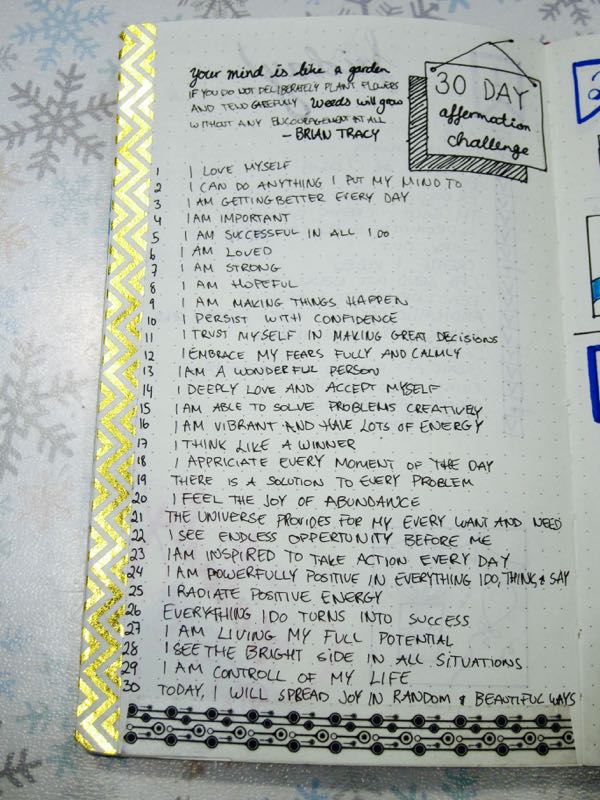 Your mind is like a garden
IF YOU DO NOT DELIBERATELY PLANT FLOWERS
AND TEND CAREFULLY, Weeds will grow
WITHOUT ANY ENCOURAGEMENT AT ALL
– BRIAN TRACY
30 DAY
affermation
challenge
1 I LOVE MYSELF
2 I CAN DO ANYTHING I PUT MY MIND TO
3 I AM GETTING BETTER EVERY DAY
4 I AM IMPORTANT
5 I AM SUCCESSFUL IN ALL I DO
6 I AM LOVED
7 I AM STRONG
8 I AM HOPEFUL
9 I AM MAKING THINGS HAPPEN
10 I PERSIST WITH CONFIDENCE
11 I TRUST MYSELF IN MAKING GREAT DECISIONS
12 I EMBRACE MY FEARS FULLY AND CALMLY
13 I AM A WONDERFUL PERSON
14 I DEEPLY LOVE AND ACCEPT MYSELF
15 I AM ABLE TO SOLVE PROBLEMS CREATIVELY
16 I AM VIBRANT AND HAVE LOTS OF ENERGY
17 I THINK LIKE A WINNER
18 I APPRICIATE EVERY MOMENT OF THE DAY
19 THERE IS A SOLUTION TO EVERY PROBLEM
20 I FEEL THE JOY OF ABUNDANCE
21 THE UNIVERSE PROVIDES FOR MY EVERY WANT AND NEED
22 I SEE ENDLESS OPPERTUNITY BEFORE ME
23 I AM INSPIRED TO TAKE ACTION EVERY DAY
24 I AM POWERFULLY POSITIVE IN EVERYTHING I DO, THINK, & SAY
25 I RADIATE POSITIVE ENERGY
26 EVERYTHING I DO TURNS INTO SUCCESS
27 I AM LIVING MY FULL POTENTIAL
28 I SEE THE BRIGHT SIDE IN ALL SITUATIONS
29 I AM CONTROLL OF MY LIFE
30 TODAY, I WILL SPREAD JOY IN RANDOM & BEAUTIFUL WAYS